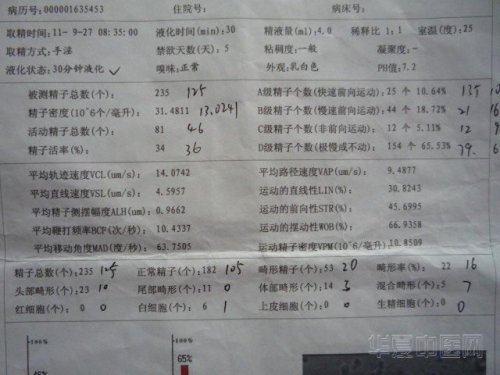 病历号:000001635453 住院号: 病床号:
取精时间:11- 9-27 08:35:00 液化时间(min):30 精液量(ml):4.0 稀释比 1: 1 室温(度):25
取精方式:手淫 禁欲天数(天):5 粘稠度:一般 凝聚度:-
液化状态:30分钟液化 ✓ 嗅味:正常 外观:乳白色 PH值:7.2
被测精子总数(个): 235 125 A级精子个数(快速前向运动):25 个 10.64% 135 10
精子密度(10^6个/毫升): 31.4811 13.0241 B级精子个数(慢速前向运动):44 个 18.72% 21 16
活动精子总数(个): 81 46 C级精子个数(非前向运动): 12 个 5.11% 12 9
精子活率(%): 34 36 D级精子个数(极慢或不动): 154 个 65.53% 79. 6
平均轨迹速度VCL(um/s): 14.0742 平均路径速度VAP(um/s): 9.4877
平均直线速度VSL(um/s): 4.5957 运动的直线性LIN(%): 30.8243
平均精子侧摆幅度ALH(um): 0.9662 运动的前向性STR(%): 45.6995
平均鞭打频率BCP(次/秒): 10.4337 运动的摆动性WOB(%): 66.9358
平均移动角度MAD(度/秒): 63.7505 运动精子密度VPM(10^6/毫升) 10.8509
精子总数(个):235 125 正常精子(个):182 105 畸形精子(个):53 20 畸形率(%): 22 16
头部畸形(个):23 10 尾部畸形(个):11 0 体部畸形(个):14 3 混合畸形(个):5 7
红细胞(个): 0 0 白细胞(个): 6 1 上皮细胞(个): 0 0 生精细胞(个):0 0
100% 100%
65%
45%
华夏中国网